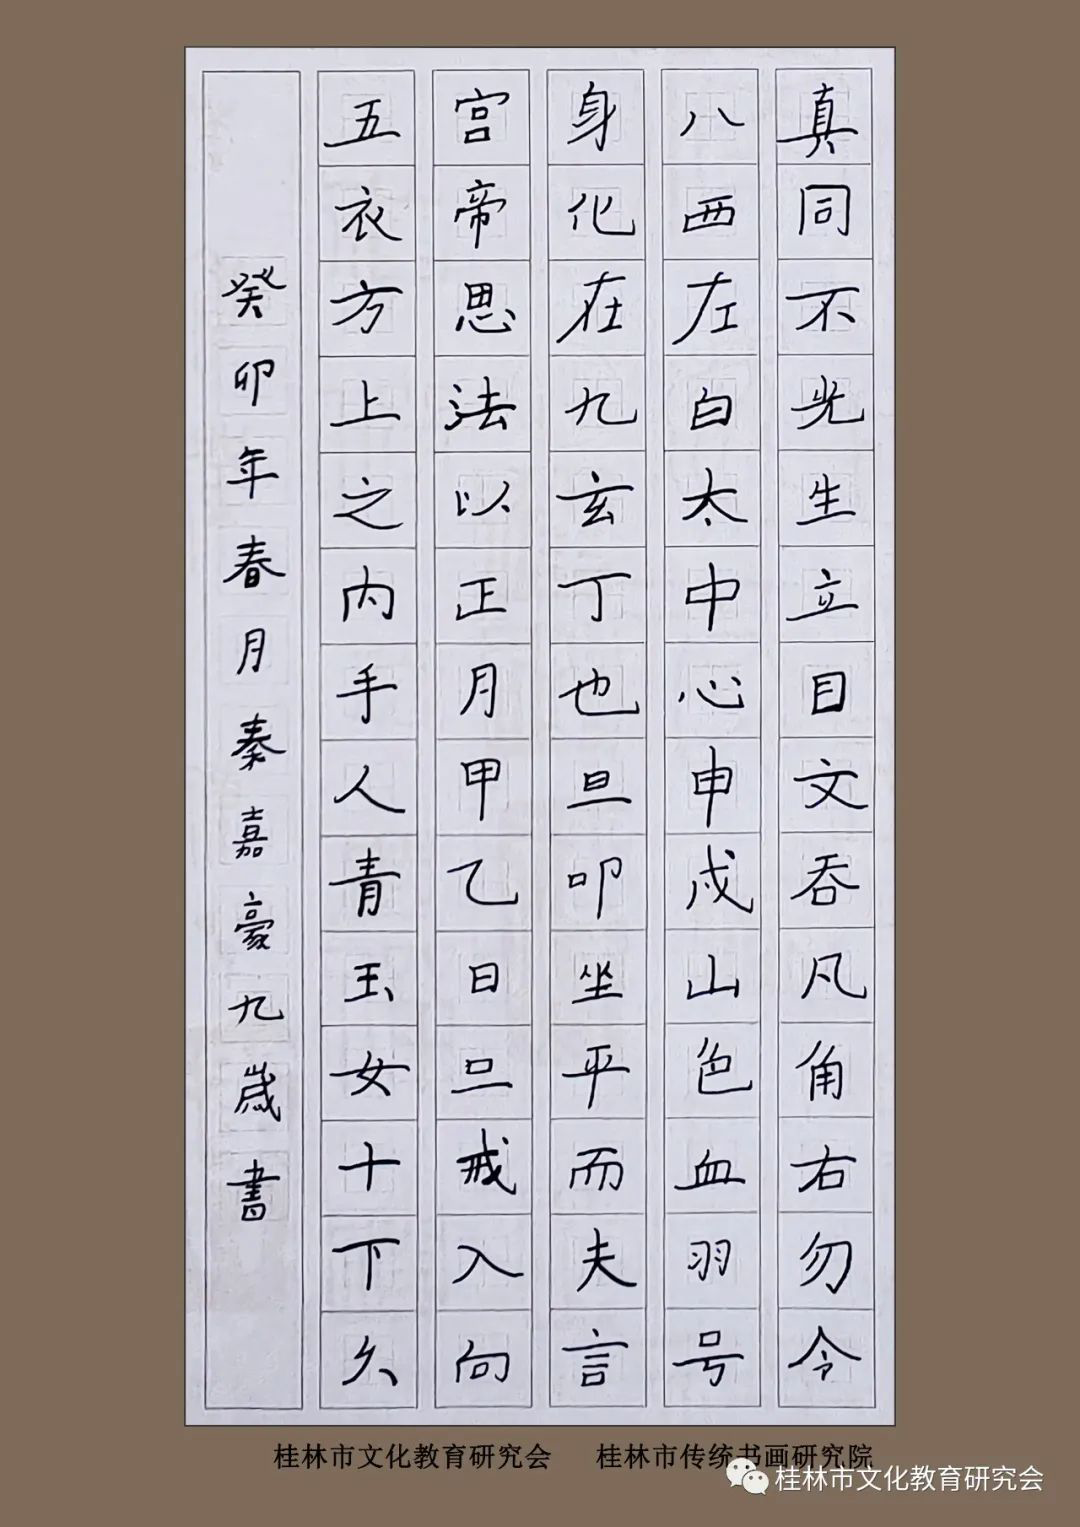 真同不光生立目文吞凡角右勿令
八西左白太中心申戍山色血羽号
身化在九玄丁也旦叩坐平而夫言
宫帝思法以正月甲乙日旦戒入向
五衣方上之内手人青玉女十下久
癸卯年春月秦嘉豪九歲書
桂林市文化教育研究会 桂林市传统书画研究院
桂林市文化教育研究会